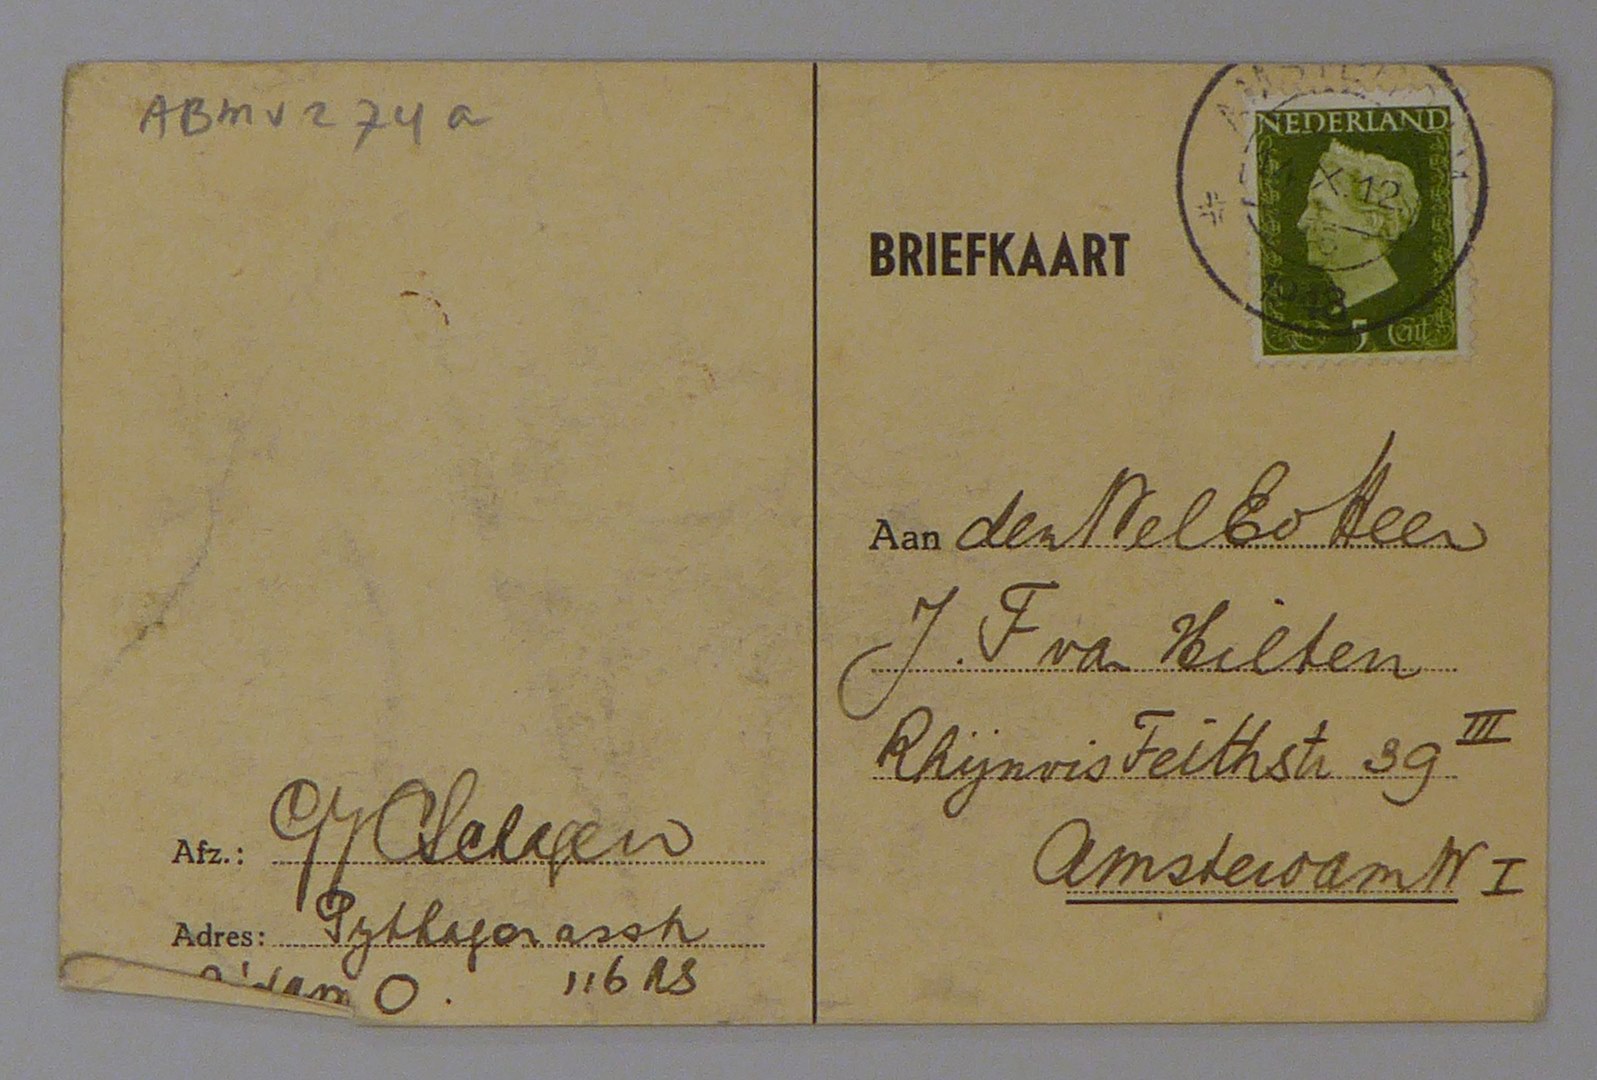 ABmv274a
NEDERLAND
X.12
1948
5 Cnt
BRIEFKAART
Aan den Wel Ed Heer
J. F van Hilten
Rhijnvis Feithstr 39 III
Amsterdam W I
Afz.: Schagen
Adres: Pythagorasstr
A'dam O. 116 hs